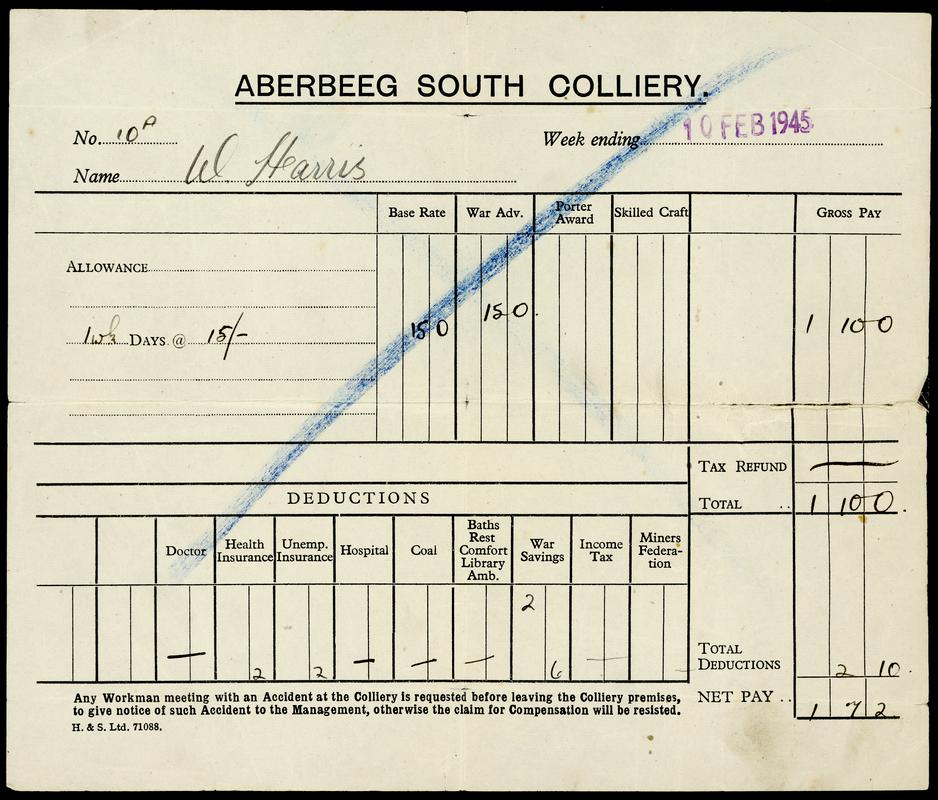 ABERBEEG SOUTH COLLIERY.
No. 10A Week ending 10 FEB 1945
Name W Harris
Base Rate War Adv. Porter Award Skilled Craft GROSS PAY
ALLOWANCE
15 0 15 0 1 10 0
1 wk DAYS @ 15/-
TAX REFUND —
TOTAL .. 1 10 0
DEDUCTIONS
Doctor Health Insurance Unemp. Insurance Hospital Coal Baths Rest Comfort Library Amb. War Savings Income Tax Miners Federa-tion
2
— 2 2 — — — 6 —
TOTAL DEDUCTIONS 2 10
NET PAY .. 1 7 2
Any Workman meeting with an Accident at the Colliery is requested before leaving the Colliery premises,
to give notice of such Accident to the Management, otherwise the claim for Compensation will be resisted.
H. & S. Ltd. 71088.